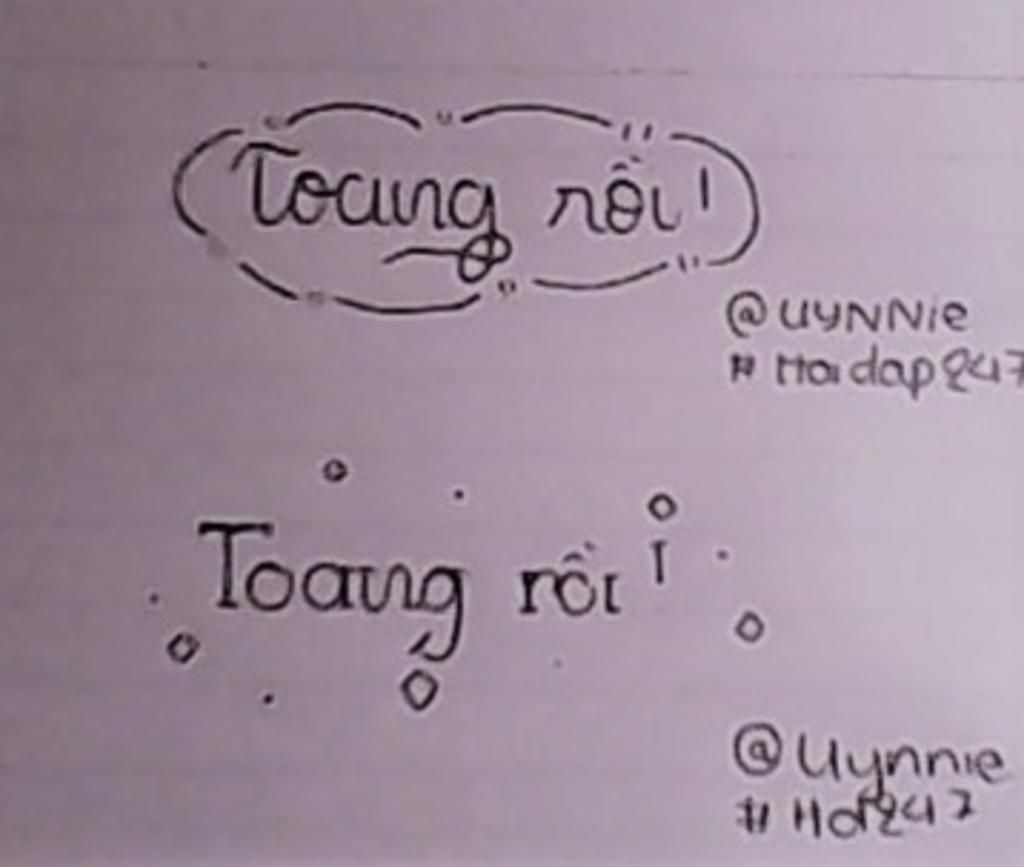 Toang rồi!
@UYNNie
#Hoidap247
Toang rồi!
@Uynnie
#Hd247